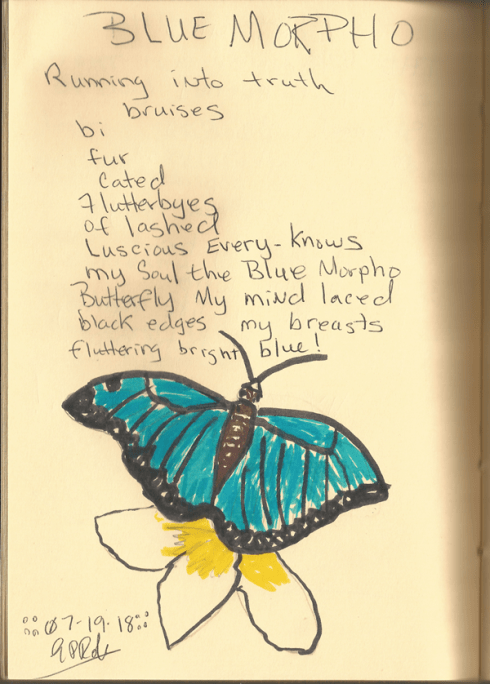 BLUE MORPHO
Running into truth
bruises
bi
fur
cated
Flutterbyes
of lashed
Luscious Every-Knows
my Soul the Blue Morpho
Butterfly My mind laced
black edges my breasts
fluttering bright blue!
07-19-18